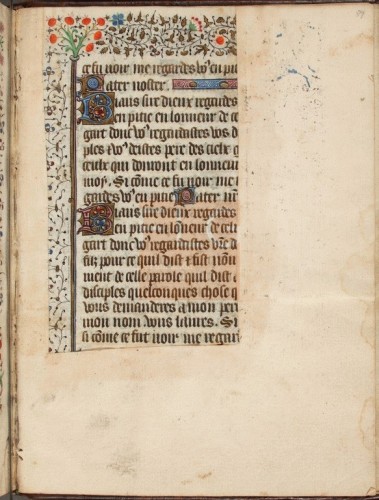 ce fu voir me regardes vo en pit
Pater noster.
Biaus sire dieux regardes
en pitie en lonneur de ce
gart dont vo regardastes vos di
ples & vo deistes pere des cielx q
ceulx qui donront en lonneur
moy. Si come ce fu voir me r
gardes vo en pitie Pater nr
Biaus sire dieux regardes
en pitie en loneur de cel
gart dont vo regardastes vre d
filz pour ce quil dist & fist non
ment de celle parole quil dist a
disciples quelconques chose q
vous demanderes a mon pere
mon nom vous laures. Si
si come ce fut voir me regar